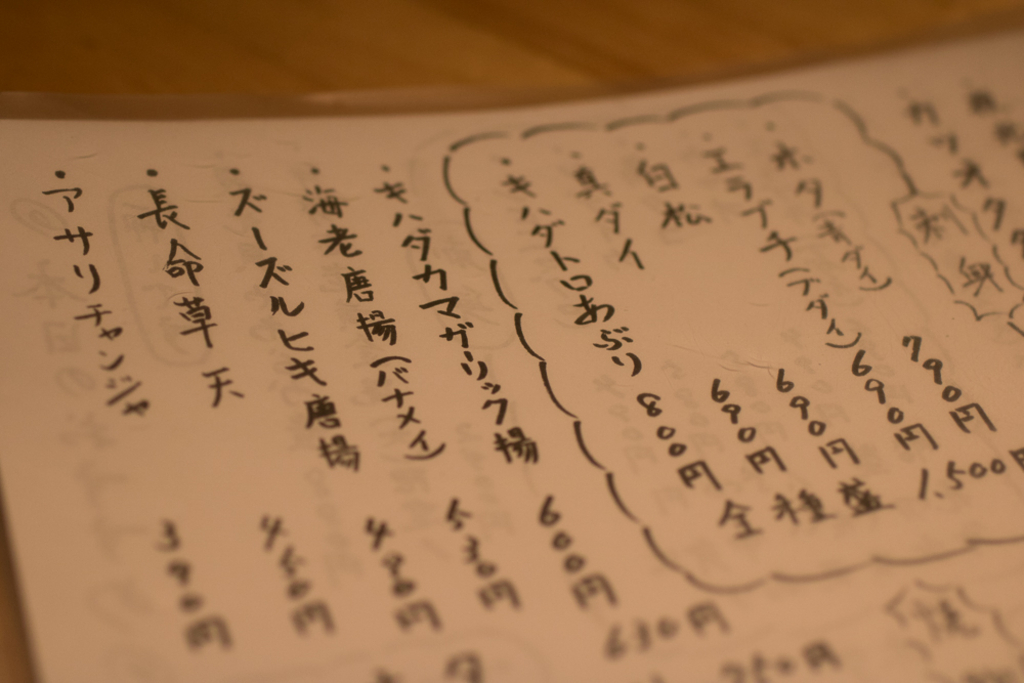 カツオタタ
刺身
・ホタ(キダイ) 790円
・エラブチ(ブダイ) 690円
・白松 690円
・真ダイ 690円
・キハダトロあぶり 800円
全種盛 1,500円
・キハダカマガーリック揚 600円
・海老唐揚(バナメイ) 530円
・ズーズルヒキ唐揚 490円
・長命草天 450円
・アサリチャンジャ 390円
630円